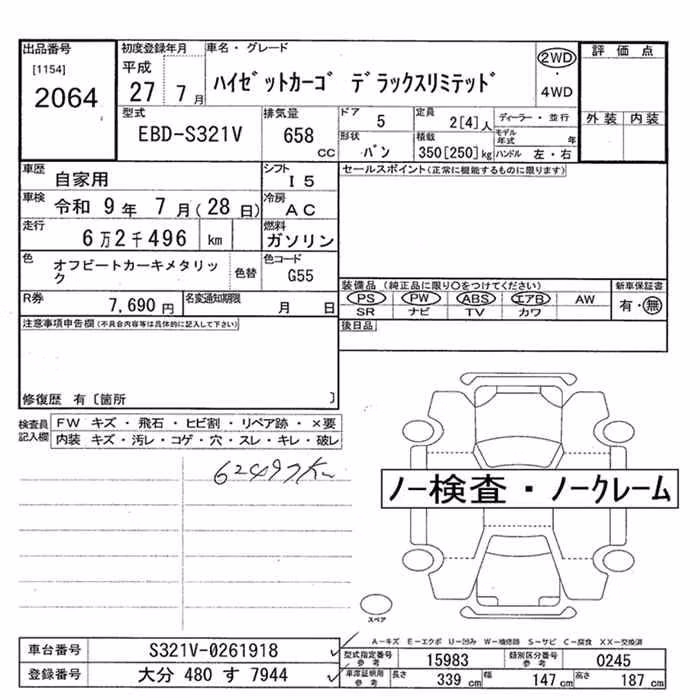 出品番号
[1154]
2064
初度登録年月
平成
27 7月
車名・グレード
ハイゼットカーゴ デラックスリミテッド
2WD
・
4WD
評価点
外装 内装
型式
EBD-S321V
排気量
658
cc
ドア 5
定員 2[4]人
ディーラー・並行
モデル年式 年
形状 バン
積載 350[250]kg
ハンドル 左・右
車歴 自家用
シフト I5
セールスポイント(正常に機能するものに限ります)
車検 令和 9年 7月(28日)
冷房 AC
走行 6万2千496 km
燃料 ガソリン
色 オフビートカーキメタリック
色替
色コード G55
装備品(純正品に限り○をつけてください)
新車保証書
PS PW ABS エアB AW
有・無
SR ナビ TV カワ
R券 7,690円
名変通知期限 月 日
後日品
注意事項申告欄(不具合内容等は具体的に記入して下さい)
修復歴 有〔箇所 〕
検査員記入欄
FW キズ・飛石・ヒビ割・リペア跡・×要
内装 キズ・汚レ・コゲ・穴・スレ・キレ・破レ
62497K
ノー検査・ノークレーム
スペア
A-キズ E-エクボ U-凹み W-補修跡 S-サビ C-腐食 XX-交換済
車台番号 S321V-0261918
登録番号 大分 480 す 7944
型式指定番号参考 15983
類別区分番号参考 0245
車庫証明用参考
長さ 339cm
幅 147cm
高さ 187cm